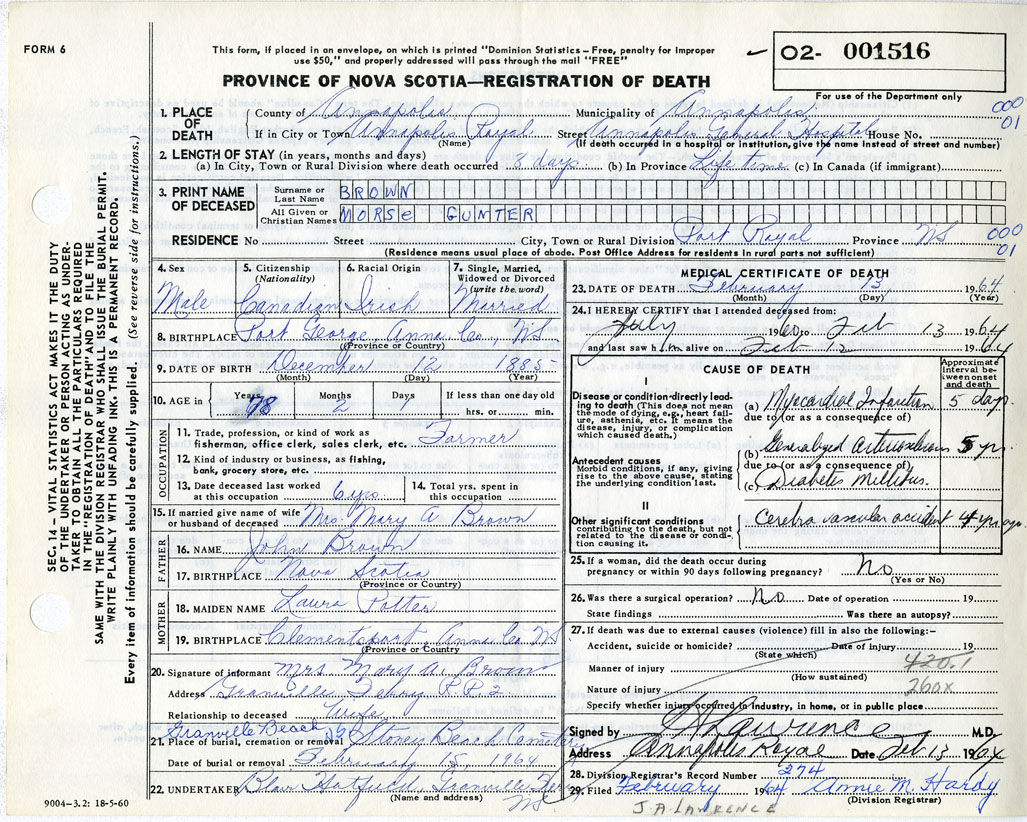 FORM 6
This form, if placed in an envelope, on which is printed "Dominion Statistics – Free, penalty for improper
use $50," and properly addressed will pass through the mail "FREE"
O2- 001516
For use of the Department only
PROVINCE OF NOVA SCOTIA—REGISTRATION OF DEATH
SEC. 14 – VITAL STATISTICS ACT MAKES IT THE DUTY
OF THE UNDERTAKER OR PERSON ACTING AS UNDER-
TAKER TO OBTAIN ALL THE PARTICULARS REQUIRED
IN THE "REGISTRATION OF DEATH" AND TO FILE THE
SAME WITH THE DIVISION REGISTRAR WHO SHALL ISSUE THE BURIAL PERMIT.
WRITE PLAINLY WITH UNFADING INK. THIS IS A PERMANENT RECORD.
Every item of information should be carefully supplied. (See reverse side for instructions.)
1. PLACE OF DEATH County of Annapolis Municipality of Annapolis 000
If in City or Town Annapolis Royal Street Annapolis General Hospital House No. 01
(Name) (If death occurred in a hospital or institution, give the name instead of street and number)
2. LENGTH OF STAY (in years, months and days)
(a) In City, Town or Rural Division where death occurred 3 days (b) In Province Life time (c) In Canada (if immigrant)
3. PRINT NAME OF DECEASED Surname or Last Name BROWN
All Given or Christian Names MORSe GUNTER
RESIDENCE No Street City, Town or Rural Division Port Royal Province NS 000
(Residence means usual place of abode. Post Office Address for residents in rural parts not sufficient) 01
4. Sex 5. Citizenship (Nationality) 6. Racial Origin 7. Single, Married, Widowed or Divorced (write the word)
Male Canadian Irish Married
8. BIRTHPLACE Port George, Anna Co, NS
(Province or Country)
9. DATE OF BIRTH December 12 1885
(Month) (Day) (Year)
10. AGE in Years 78 Months 2 Days 1 If less than one day old hrs. or min.
OCCUPATION
11. Trade, profession, or kind of work as
fisherman, office clerk, sales clerk, etc. Farmer
12. Kind of industry or business, as fishing,
bank, grocery store, etc.
13. Date deceased last worked at this occupation 6 yrs 14. Total yrs. spent in this occupation
15. If married give name of wife or husband of deceased Mrs. Mary A Brown
FATHER
16. NAME John Brown
17. BIRTHPLACE Nova Scotia
(Province or Country)
MOTHER
18. MAIDEN NAME Laura Potter
19. BIRTHPLACE Clementsport Anna Co NS
(Province or Country)
20. Signature of informant Mrs. Mary A. Brown
Address Granville Ferry R.R.2
Relationship to deceased Wife
Granville Beach NS
21. Place of burial, cremation or removal Stoney Beach Cemetery
Date of burial or removal February 15, 1964
22. UNDERTAKER Blair Hatfield, Granville Ferry
(Name and address) NS
9004–3.2: 18-5-60
MEDICAL CERTIFICATE OF DEATH
23. DATE OF DEATH February 13, 1964
(Month) (Day) (Year)
24. I HEREBY CERTIFY that I attended deceased from:
July 1960 to Feb 13 1964
and last saw him alive on Feb 12 1964
CAUSE OF DEATH
Approximate interval between onset and death
I
Disease or condition directly leading to death (This does not mean the mode of dying, e.g., heart failure, asthenia, etc. It means the disease, injury, or complication which caused death.)
(a) Myocardial Infarction 5 days
due to (or as a consequence of)
Antecedent causes
Morbid conditions, if any, giving rise to the above cause, stating the underlying condition last.
(b) Generalized Arteriosclerosis 5 yrs
due to (or as a consequence of)
(c) Diabetes Mellitus.
II
Other significant conditions
contributing to the death, but not related to the disease or condition causing it.
Cerebro vascular accident 4 yrs ago
25. If a woman, did the death occur during
pregnancy or within 90 days following pregnancy? No
(Yes or No)
26. Was there a surgical operation? No Date of operation 19
State findings Was there an autopsy?
27. If death was due to external causes (violence) fill in also the following:–
Accident, suicide or homicide? Date of injury 19
(State which) 420.1
Manner of injury
(How sustained) 260x
Nature of injury
Specify whether injury occurred in industry, in home, or in public place
Signed by Lawrence M.D.
Address Annapolis Royal Date Feb 13 1964
28. Division Registrar's Record Number 274
29. Filed February 1964 Annie M. Hardy
(Division Registrar)
J.A. LAWRENCE